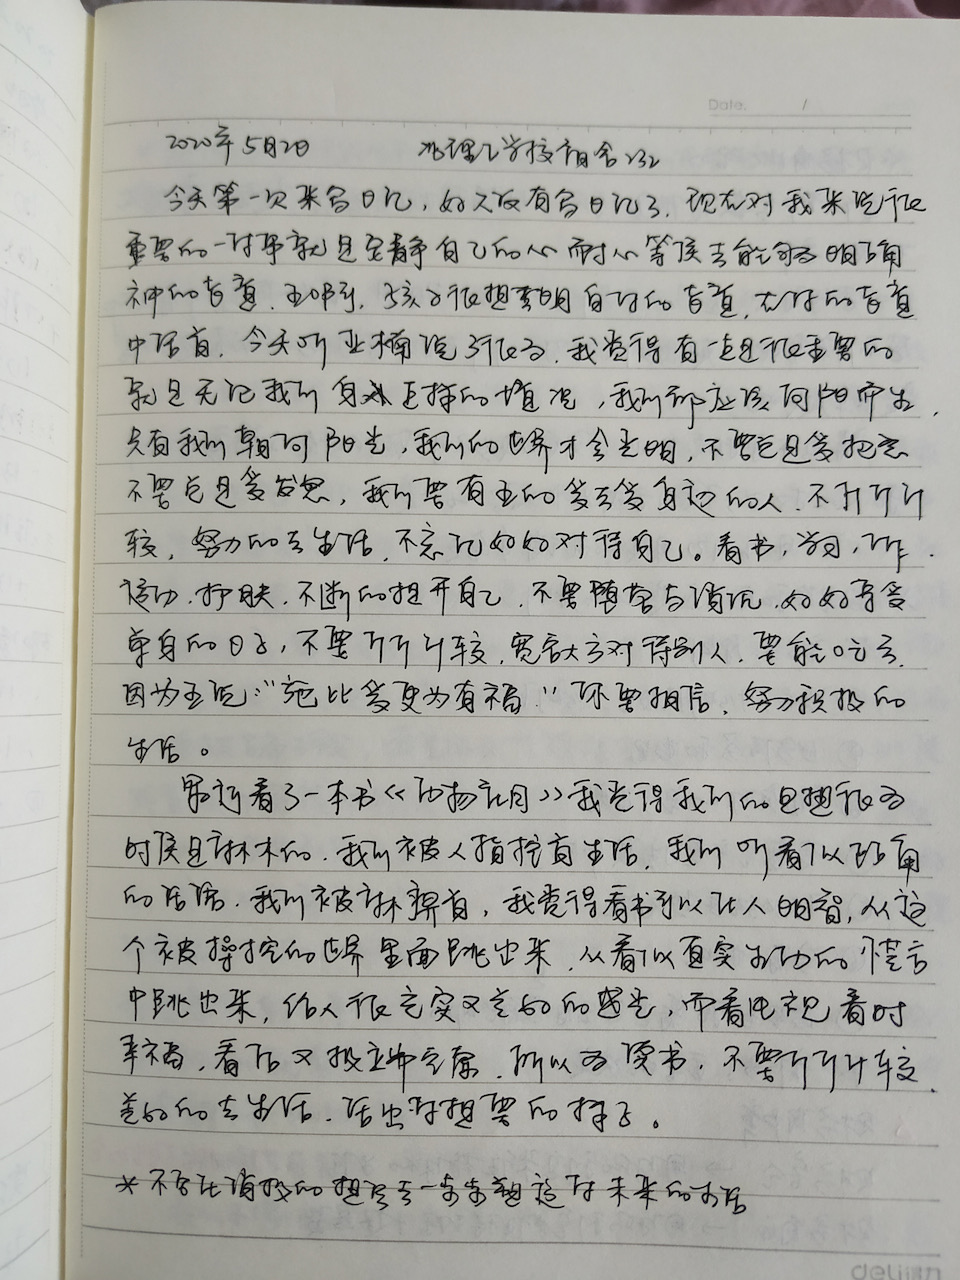 Date. /
2020年5月2日 理工学校宿舍232
今天第一次来写日记，好久没有写日记了，现在对我来说很
重要的一件事就是安静自己的心耐心等候去能够明白
神的旨意，孩子很想要明白的旨意，在的旨意
中活着，今天听亚楠说了很多，我觉得有一点是很重要的
就是无论我们身处怎样的境况，我们都应该向阳而生，
只有我们朝向阳光，我们的世界才会光明，不要总是爱抱怨
不要总是爱发怒，我们要有主的爱去爱身边的人，不斤斤计
较，努力的去生活，不忘记好好对待自己。看书，学习，工作，
运动，护肤，不断的提升自己，不要随苦与消沉，好好享受
单身的日子，不要斤斤计较，宽容大方对待别人，要能吃亏，
因为主说："施比受更为有福" 你要相信，努力积极的
生活。
最近看了一本书《》我觉得我们的思想很多
时候是麻木的，我们被人指控着生活，我们听看似的
的活活，我们被麻醉着，我觉得看书可以让人明智，从这
个被操控的世界里面跳出来，从看似真实的谎言
中跳出来，给人很充实又美好的感觉，而看电视看时
幸福，看后又极空虚，所以多读书，不要斤斤计较，
美好的去生活，活出想要的样子。
* 不要让消极的想法去一步步塑造你未来的生活
deli 得力